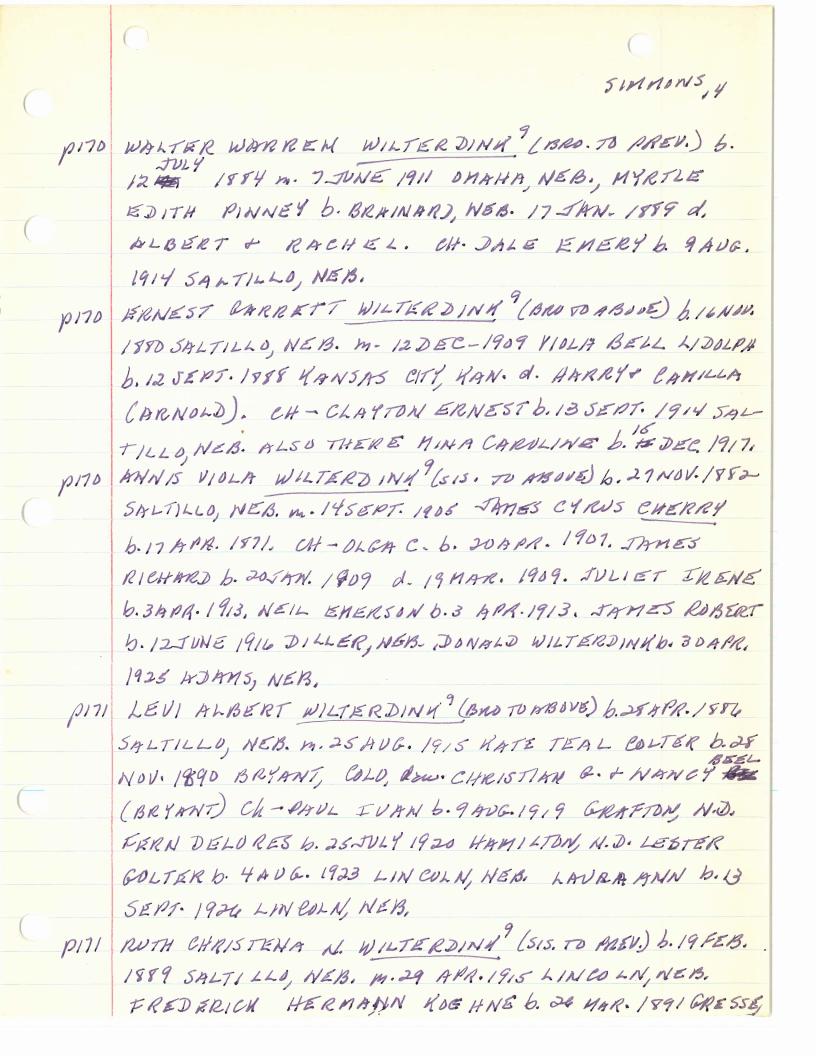 SIMMONS, 4
p170 WALTER WARREN WILTERDINK⁹ (BRO. TO PREV.) b.
12 JULY 1884 m. 7 JUNE 1911 OMAHA, NEB., MYRTLE
EDITH PINNEY b. BRAINARD, NEB. 17 JAN. 1889 d.
ALBERT & RACHEL. CH. DALE EMERY b. 9 AUG.
1914 SALTILLO, NEB.
p170 ERNEST GARRETT WILTERDINK⁹ (BRO TO ABOVE) b. 16 NOV.
1880 SALTILLO, NEB. m- 12 DEC-1909 VIOLA BELL LIDOLPH
b. 12 SEPT. 1888 KANSAS CITY, KAN. d. HARRY & CAMILLA
(ARNOLD). CH - CLAYTON ERNEST b. 13 SEPT. 1914 SAL-
TILLO, NEB. ALSO THERE MINA CAROLINE b. 15 DEC. 1917.
p170 ANNIS VIOLA WILTERDINK⁹ (SIS. TO ABOVE) b. 27 NOV. 1882
SALTILLO, NEB. m. 14 SEPT. 1905 JAMES CYRUS CHERRY
b. 17 APR. 1871. CH - OLGA C. b. 20 APR. 1907. JAMES
RICHARD b. 20 JAN. 1909 d. 19 MAR. 1909. JULIET IRENE
b. 3 APR. 1913. NEIL EMERSON b. 3 APR. 1913. JAMES ROBERT
b. 12 JUNE 1916 DILLER, NEB. DONALD WILTERDINK b. 30 APR.
1925 ADAMS, NEB.
p171 LEVI ALBERT WILTERDINK⁹ (BRO TO ABOVE) b. 28 APR. 1886
SALTILLO, NEB. m. 25 AUG. 1915 KATE TEAL COLTER b. 28
NOV. 1890 BRYANT, COLO, dau. CHRISTIAN G. & NANCY BEEL
(BRYANT) Ch - PAUL IVAN b. 9 AUG. 1919 GRAFTON, N.D.
FERN DELORES b. 25 JULY 1920 HAMILTON, N.D. LESTER
GOLTER b. 4 AUG. 1923 LINCOLN, NEB. LAURA ANN b. 13
SEPT. 1926 LINCOLN, NEB.
p171 RUTH CHRISTENA N. WILTERDINK⁹ (SIS. TO PREV.) b. 19 FEB.
1889 SALTILLO, NEB. m. 29 APR. 1915 LINCOLN, NEB.
FREDERICK HERMANN KOEHNE b. 26 MAR. 1891 GRESSE,